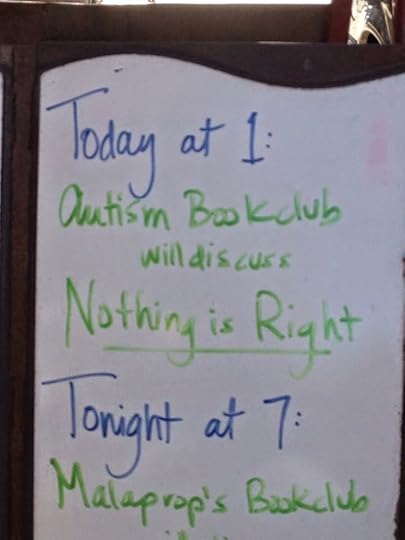 Today at 1:
Autism Bookclub
will discuss
Nothing is Right
Tonight at 7:
Malaprop's Bookclub